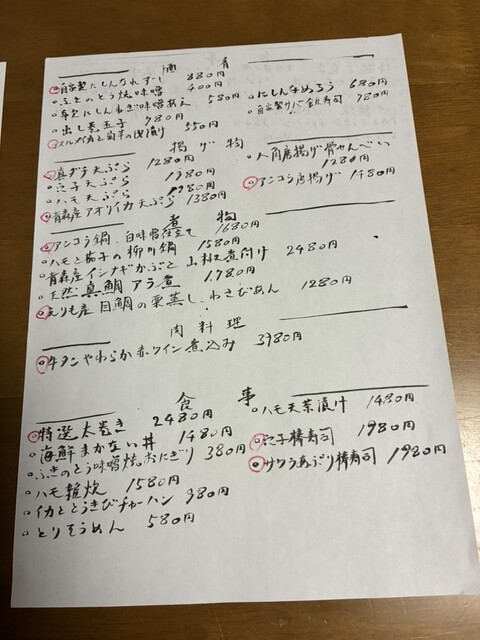 酒肴
自家製にしんなれずし 880円
ふきのとう焼味噌 400円
年欠にしんねぎ味噌あえ 580円
出し巻玉子 980円
スルメイカと旬菜の浅漬け 550円
にしん手ぬるう 680円
自家製サバ 寿司 980円
揚げ物
真ダチ天ぷら 1280円
穴子天ぷら 1380円
ハモ天ぷら 1980円
青森産アオリイカ天ぷら 1380円
八角唐揚げ骨せんべい
1280円
アンコウ唐揚げ 1480円
煮物
アンコウ鍋 白味噌仕立て 1680円
ハモと茄子の柳川鍋 1580円
青森産イシナギかぶと山椒煮付け 2480円
天然真鯛アラ煮 1780円
えりも産目鯛の栗蒸し わさびあん 1280円
肉料理
牛タンやわらか赤ワイン煮込み 3980円
食事
特選太巻き 2480円
海鮮まかない丼 1480円
ふきのとう味噌焼おにぎり 380円
ハモ雑炊 1580円
イカととうきびチャーハン 980円
とりそうめん 580円
ハモ天茶漬け 1480円
穴子棒寿司 1980円
サクラあぶり棒寿司 1980円